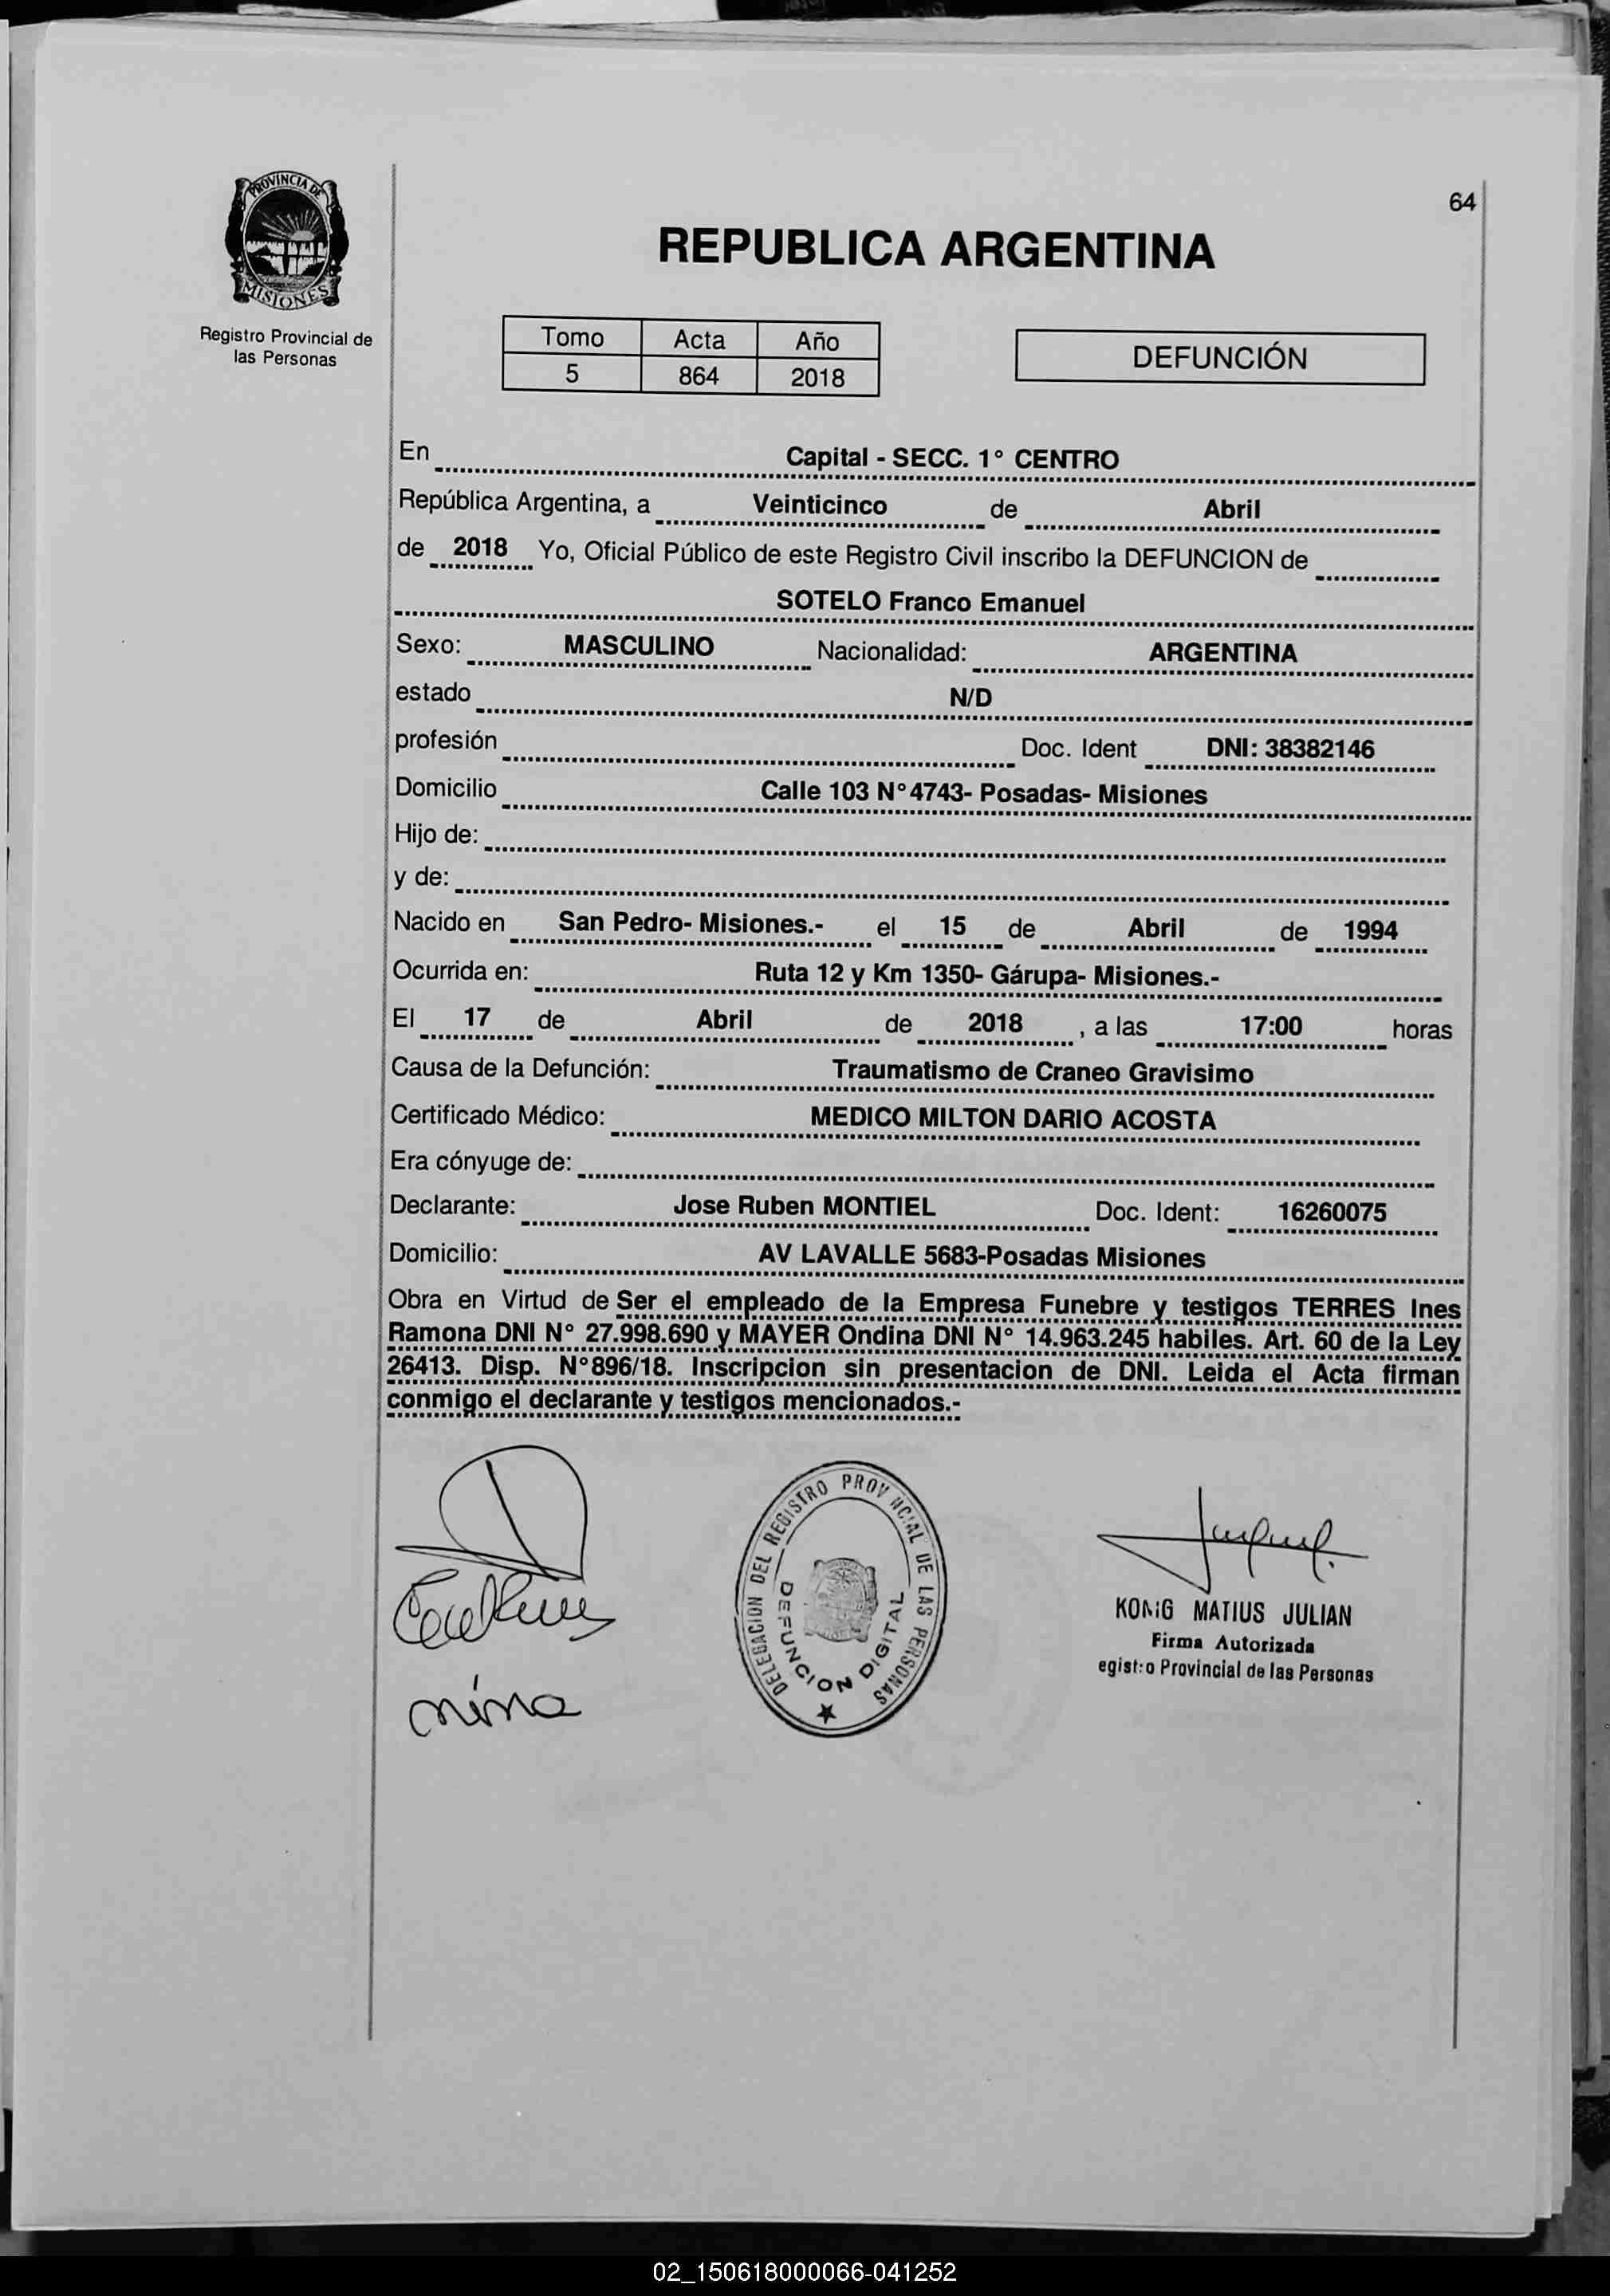 64
PROVINCIA DE
MISIONES
Registro Provincial de
las Personas
REPUBLICA ARGENTINA
Tomo Acta Año
5 864 2018
DEFUNCIÓN
En Capital - SECC. 1° CENTRO
República Argentina, a Veinticinco de Abril
de 2018 Yo, Oficial Público de este Registro Civil inscribo la DEFUNCION de
SOTELO Franco Emanuel
Sexo: MASCULINO Nacionalidad: ARGENTINA
estado N/D
profesión Doc. Ident DNI: 38382146
Domicilio Calle 103 N°4743- Posadas- Misiones
Hijo de:
y de:
Nacido en San Pedro- Misiones.- el 15 de Abril de 1994
Ocurrida en: Ruta 12 y Km 1350- Gárupa- Misiones.-
El 17 de Abril de 2018 , a las 17:00 horas
Causa de la Defunción: Traumatismo de Craneo Gravisimo
Certificado Médico: MEDICO MILTON DARIO ACOSTA
Era cónyuge de:
Declarante: Jose Ruben MONTIEL Doc. Ident: 16260075
Domicilio: AV LAVALLE 5683-Posadas Misiones
Obra en Virtud de Ser el empleado de la Empresa Funebre y testigos TERRES Ines
Ramona DNI N° 27.998.690 y MAYER Ondina DNI N° 14.963.245 habiles. Art. 60 de la Ley
26413. Disp. N°896/18. Inscripcion sin presentacion de DNI. Leida el Acta firman
conmigo el declarante y testigos mencionados.-
DELEGACION DEL REGISTRO PROV NCIAL DE LAS PERSONAS
DEFUNCION DIGITAL
KONIG MATIUS JULIAN
Firma Autorizada
egistro Provincial de las Personas
02_150618000066-041252